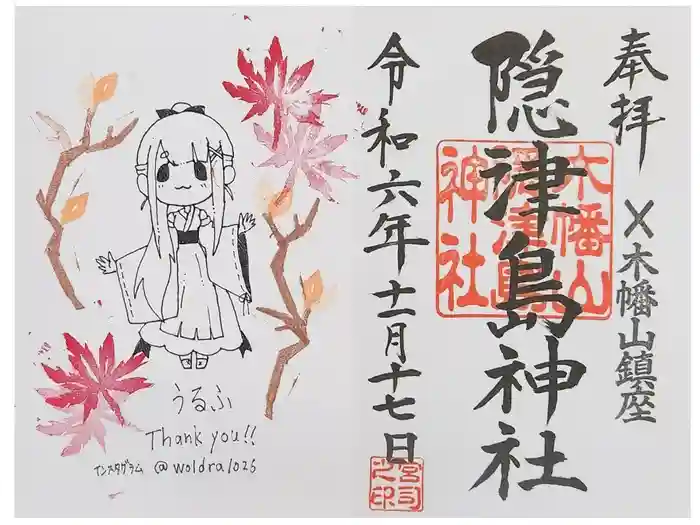 奉拝
木幡山鎮座
隠津島神社
木幡山
隠津島
神社
令和六年十一月十七日
宮司之印
うるふ
Thank you!!
インスタグラム @woldra1026